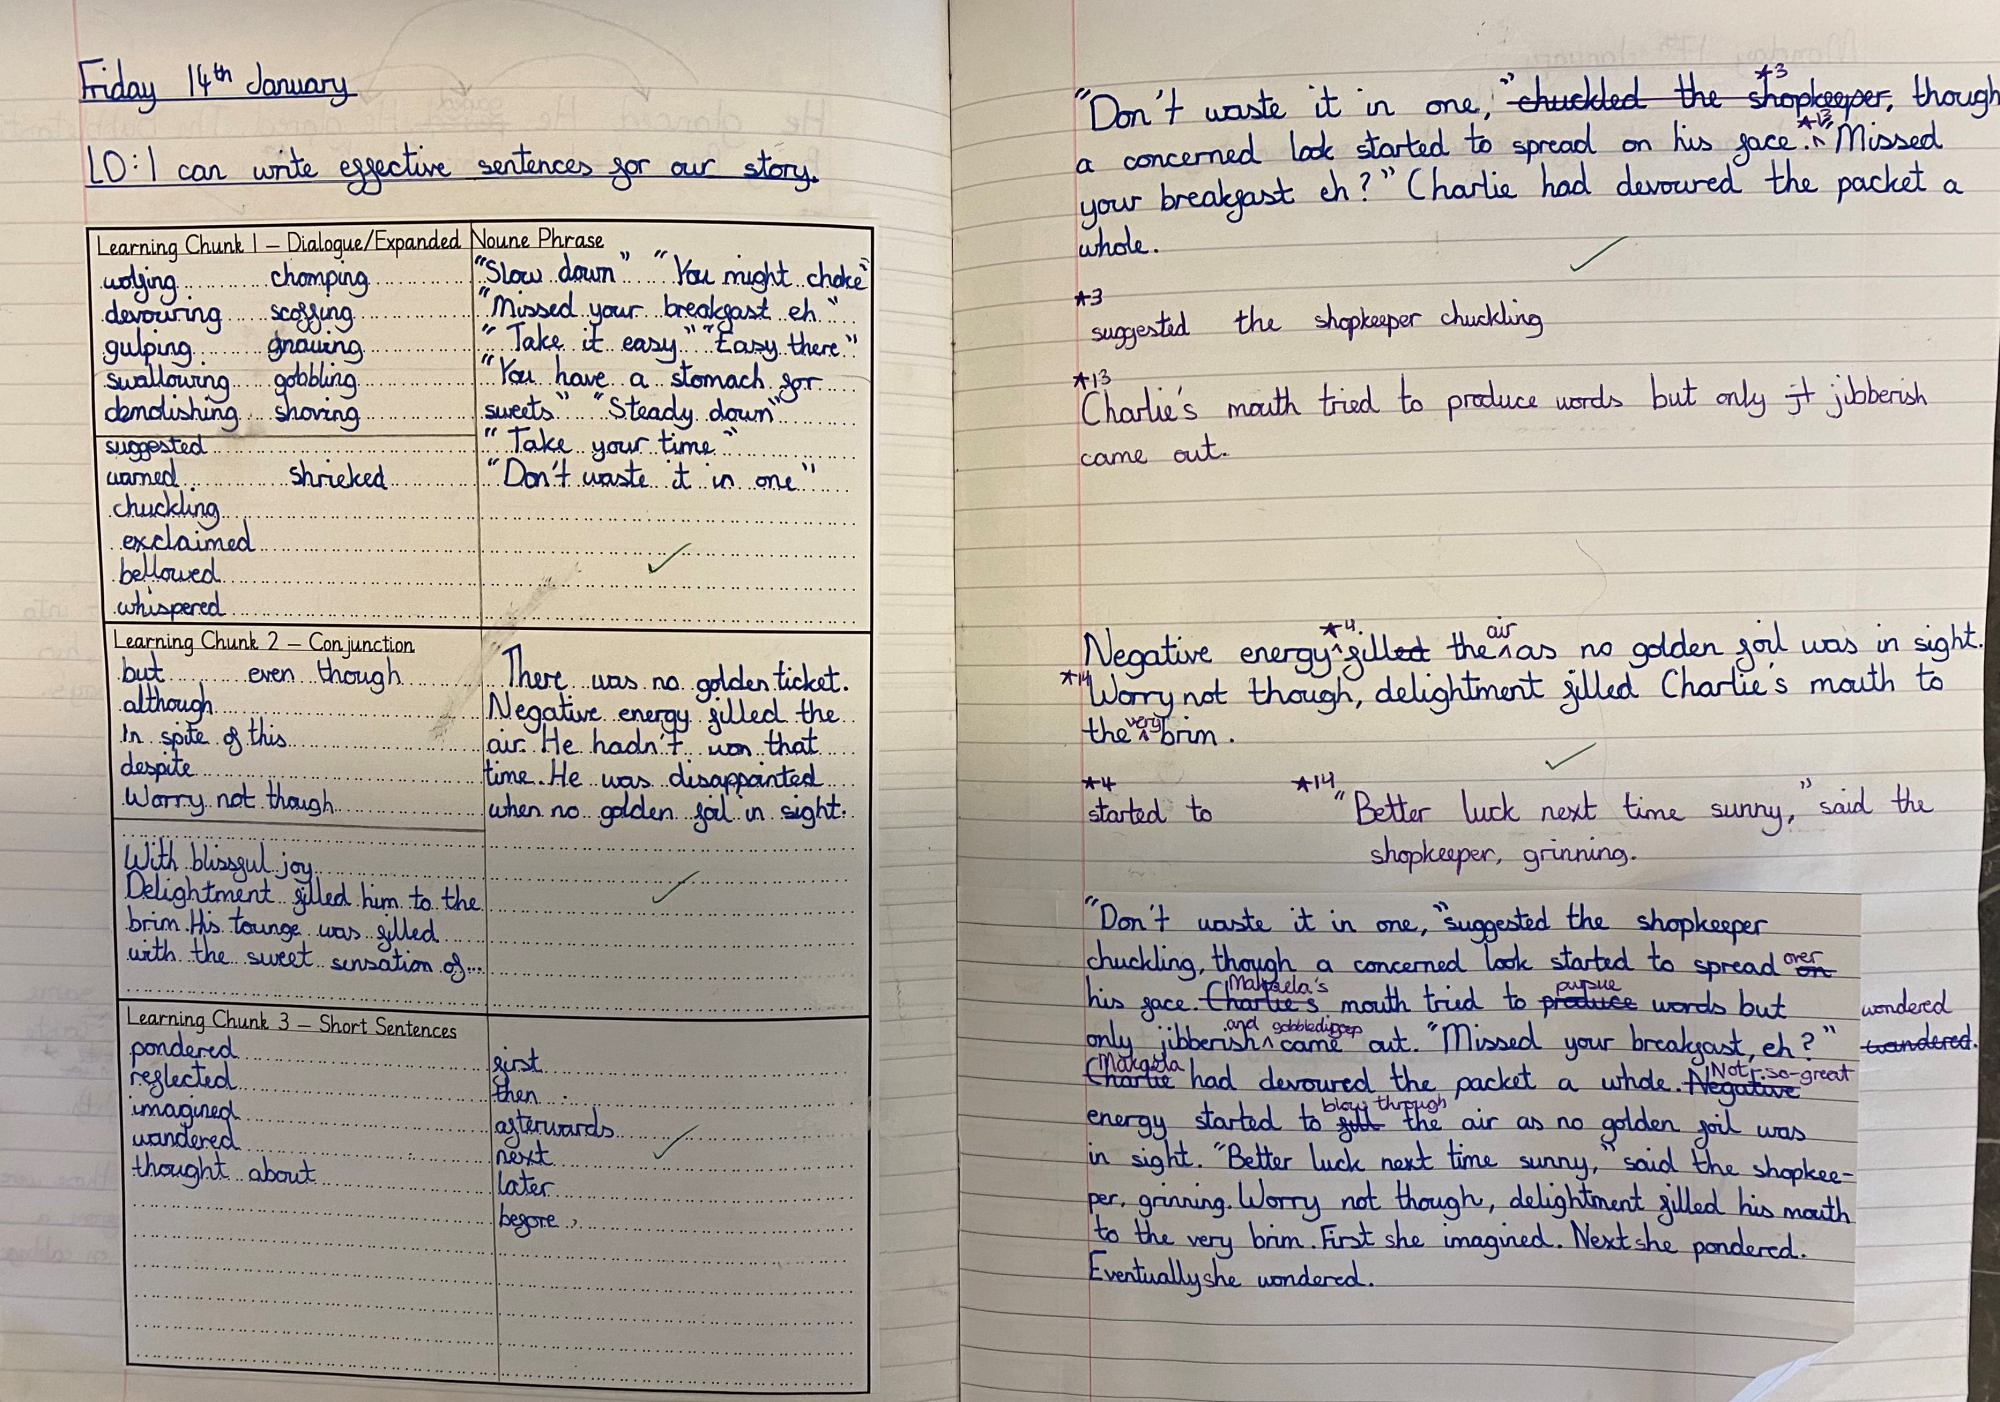 Friday 14th January
LO: I can write effective sentences for our story.
Learning Chunk 1 – Dialogue/Expanded Noune Phrase
wolfing chomping
devouring scoffing
gulping gnawing
swallowing gobbling
demolishing shoving
suggested
warned shrieked
chuckling
exclaimed
bellowed
whispered
"Slow down" "You might choke"
"Missed your breakfast eh."
"Take it easy" "Easy there"
"You have a stomach for
sweets" "Steady down"
"Take your time"
"Don't waste it in one"
Learning Chunk 2 – Conjunction
but even though
although
In spite of this
despite
Worry not though
With blissful joy
Delightment filled him to the
brim. His tounge was filled
with the sweet sensation of...
There was no golden ticket.
Negative energy filled the
air. He hadn't won that
time. He was disappointed
when no golden foil in sight.
Learning Chunk 3 – Short Sentences
pondered
reflected
imagined
wandered
thought about
first
then
afterwards
next
later
before
"Don't waste it in one," chuckled the shopkeeper, though
*3
a concerned look started to spread on his face. *13 ^ "Missed
your breakfast eh?" Charlie had devoured the packet a
whole.
*3
suggested the shopkeeper chuckling
*13
Charlie's mouth tried to produce words but only jibberish
came out.
Negative energy *4 ^ filled the ^ air as no golden foil was in sight.
*14 Worry not though, delightment filled Charlie's mouth to
the ^ very brim.
*4 *14
started to "Better luck next time sunny," said the
shopkeeper, grinning.
"Don't waste it in one," suggested the shopkeeper
chuckling, though a concerned look started to spread on over
his face. Charlie's mouth tried to produce pursue words but
only jibberish ^ and came out. "Missed your breakfast, eh?"
wondered
wandered.
Charlie had devoured the packet a whole. Negative Not-so-great
energy started to fill blow through the air as no golden foil was
in sight. "Better luck next time sunny," said the shopkee-
per, grinning. Worry not though, delightment filled his mouth
to the very brim. First she imagined. Next she pondered.
Eventually she wondered.